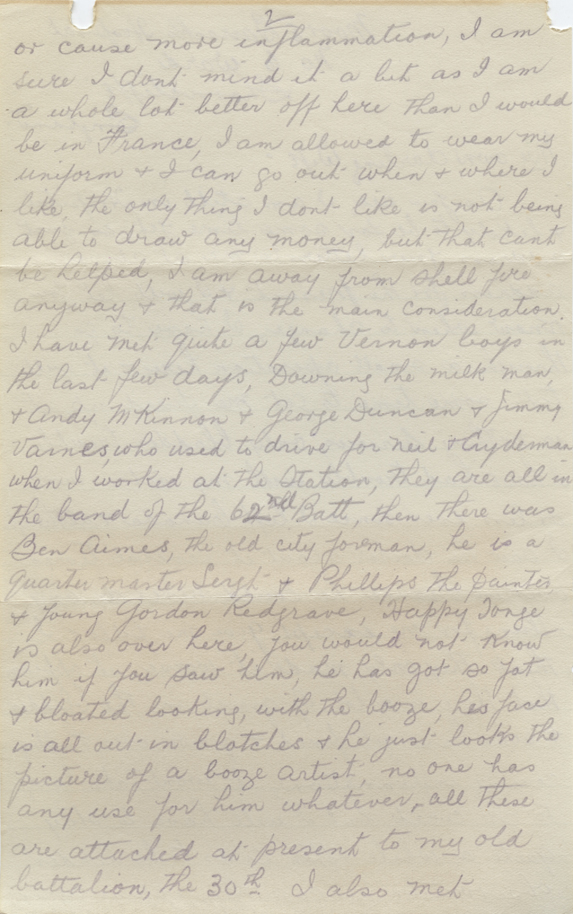 2
or cause more inflammation, I am
sure I dont mind it a bit as I am
a whole lot better off here than I would
be in France, I am allowed to wear my
uniform + I can go out when + where I
like, the only thing I dont like is not being
able to draw any money, but that cant
be helped, I am away from shell fire
anyway + that is the main consideration.
I have met quite a few Vernon boys in
the last few days, Downing the milk man,
+ Andy McKinnon + George Duncan + Jimmy
Varnes, who used to drive for Neil + Cryderman
when I worked at the Station, they are all in
the band of the 62nd Batt, then there was
Ben Aimes, the old city foreman, he is a
quarter master Sergt + Phillips the Painter,
+ young Gordon Redgrave, Happy Tonge
is also over here, you would not know
him if you saw him, he has got so fat
+ bloated looking, with the booze, hes face
is all out in blotches + he just looks the
picture of a booze artist, no one has
any use for him whatever, all these
are attached at present to my old
battalion, the 30th I also met